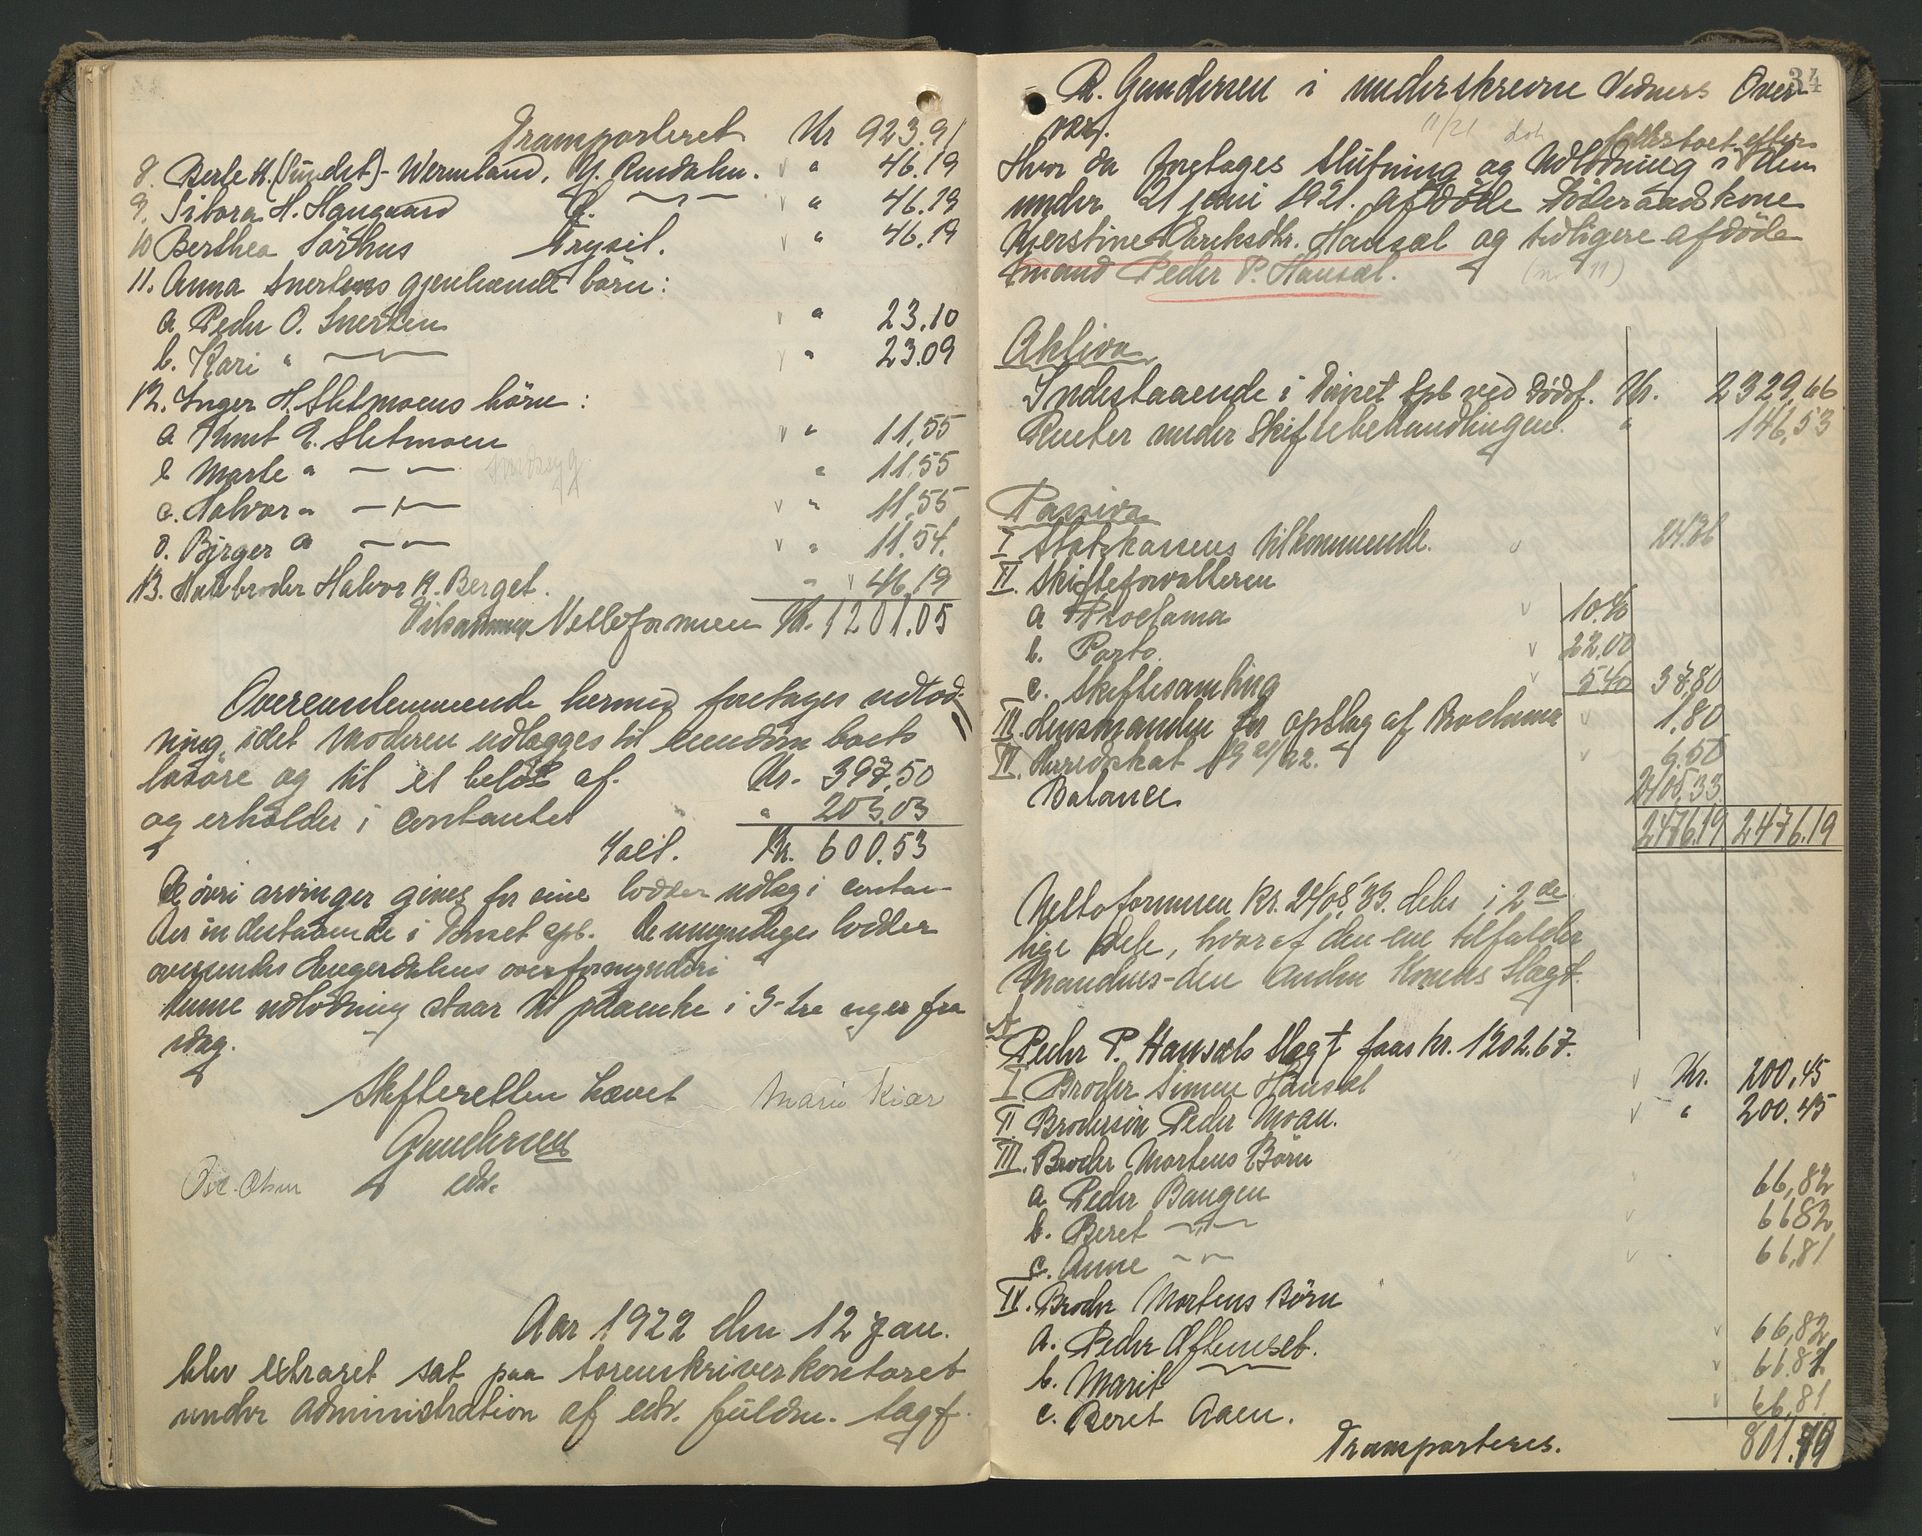 Transporteret Kr 923.91
8. Berte H. (Sundet) - Wermland, Y. Rendalen. " 46.19
9. Sibora H. Haugaard " 46.19
10 Berthea Sørhus Trysil. " 46.19
11. Anna Snertens gjenlevende børn:
a Peder O. Snerten " 23.10
b. Kari " " 23.09
12. Inger H. Sletmoens børn:
a Knut E. Sletmoen " 11,55
b Marte " " 11.55
c. Halvor " " 11,55
d. Birger " " 11.54.
13. Halvbroder Halvor H. Berget. " 46.19
Tilsammen Nettoformuen Kr. 1201.05
Overensstemmende hermed foretages udlod-
ning, idet moderen udlægges til eiendom boets
løsøre og til et beløb af. Kr. 397,50
og erholder i contanter " 203,03
Ialt. Kr. 600.53
De øvri arvinger gives for sine lodder udlæg i contan-
ter indestaaende i Tønset spb. De umyndiges lodder
oversendes Engerdalens overformynderi
Denne udlodning staar til paaanke i 3-tre uger fra
idag.
Skifteretten hævet Marie Kiær
Gundersen
edv.
Ove. Ohm
Aar 1922 den 12 jan.
blev extraret sat paa sorenskriverkontoret
under administration af edv. fuldm. sagf.
34
R. Gundersen i underskrevne Vidners Over-
vær.
Hvor da foretages Slutning og Udlodning i den
under 21 juni 1921. afdøde Føderaadskone
Kjerstine Eriksdtr. Hansæl og tidligere afdøde
mand Peder P. Hansæl. (nr 11)
Aktiva
Indestaaende i Tønset Spb ved Dødsf. Kr. 2329,66
Renter under Skiftebehandlingen. " 146,53
Passiva
I Statskassens tilkommende. 24.76
II. Skifteforvalteren
a Proclama 10.40
b. Porto. 22.00
c. Skiftesamling 5.40 37,80
III. Lensmanden for opslag af Proclama 1.80
IV. Herredskat 1921/22. 6.50
Balance 2405.33
2476.19 2476.19
Nettoformuen Kr. 2405,33. deles i 2de
lige dele, hvoraf den ene tilfalder
Mandens - den anden Konens Slægt.
A
Peder P. Hansæls Slægt faar kr. 1202.67.
I. Broder Simen Hansæl Kr. 200,45
II. Brodersøn Peder Moan. " 200.45
III. Broder Mortens Børn
a Peder Bangen 66,82
b. Beret 66.82
c. Anne 66,81
IV. Broder Mortens Børn
a. Peder Øftenset. 66,82
b. Marit 66.82
c. Beret Aaen. 66,81
Transporteres. 801.79